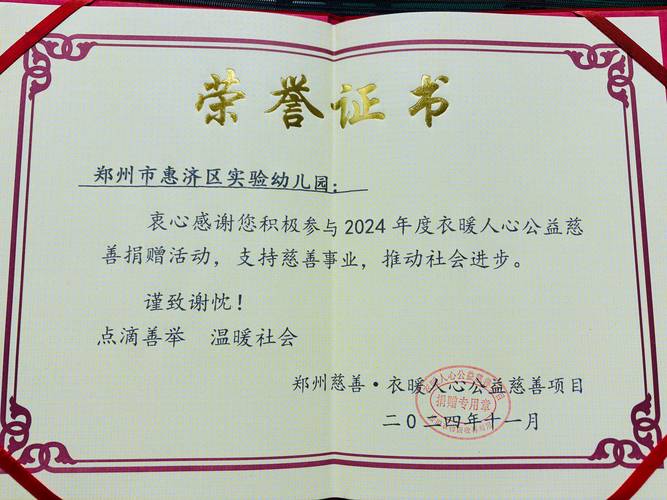 荣誉证书
郑州市惠济区实验幼儿园：
衷心感谢您积极参与2024年度衣暖人心公益慈
善捐赠活动，支持慈善事业，推动社会进步。
谨致谢忱！
点滴善举 温暖社会
郑州慈善·衣暖人心公益慈善项目
捐赠专用章
二〇二四年十一月